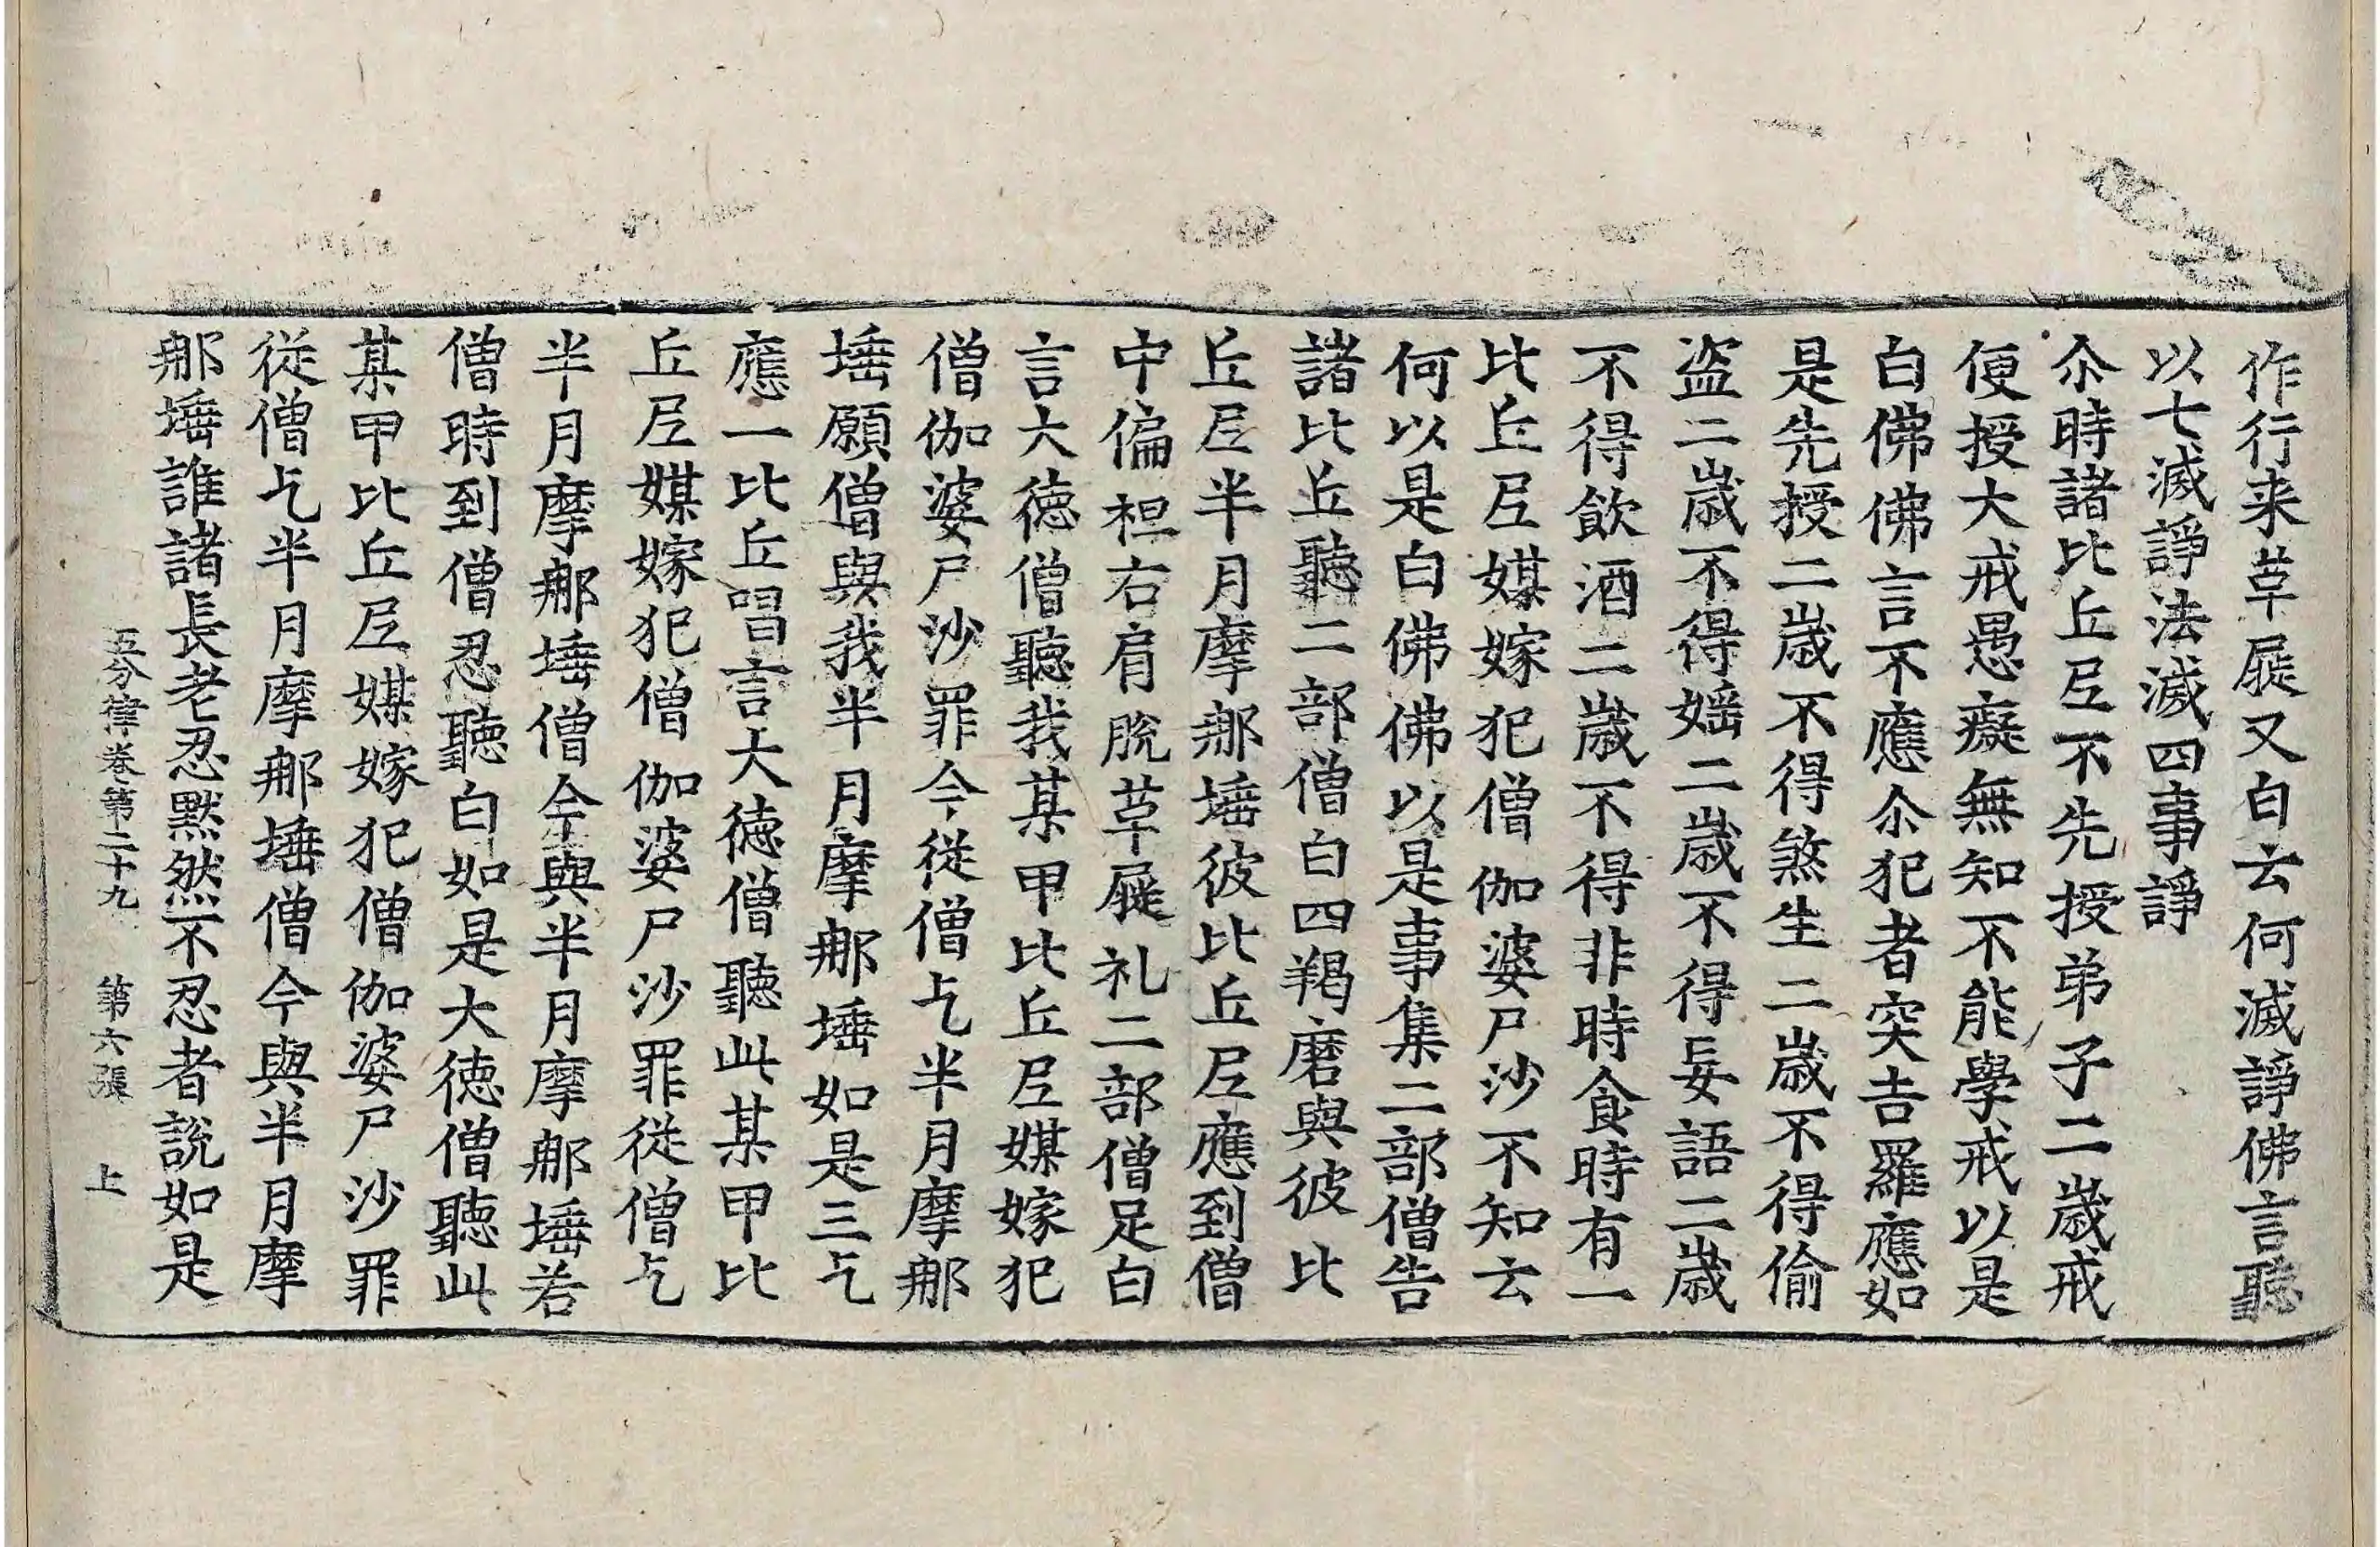 作行来草屣又白云何滅諍佛言聽
以七滅諍法滅四事諍
尒時諸比丘尼不先授弟子二歲戒
便授大戒愚癡無知不能學戒以是
白佛佛言不應尒犯者突吉羅應如
是先授二歲不得煞生二歲不得偷
盜二歲不得婬二歲不得妄語二歲
不得飲酒二歲不得非時食時有一
比丘尼媒嫁犯僧伽婆尸沙不知云
何以是白佛佛以是事集二部僧告
諸比丘聽二部僧白四羯磨與彼比
丘尼半月摩那埵彼比丘尼應到僧
中偏袒右肩脫草屣礼二部僧足白
言大徳僧聽我某甲比丘尼媒嫁犯
僧伽婆尸沙罪今從僧乞半月摩那
埵願僧與我半月摩那埵如是三乞
應一比丘唱言大徳僧聽此某甲比
丘尼媒嫁犯僧伽婆尸沙罪從僧乞
半月摩那埵僧今與半月摩那埵若
僧時到僧忍聽白如是大徳僧聽此
某甲比丘尼媒嫁犯僧伽婆尸沙罪
從僧乞半月摩那埵僧今與半月摩
那埵誰諸長老忍默然不忍者說如是
五分律卷第二十九 第六張 上